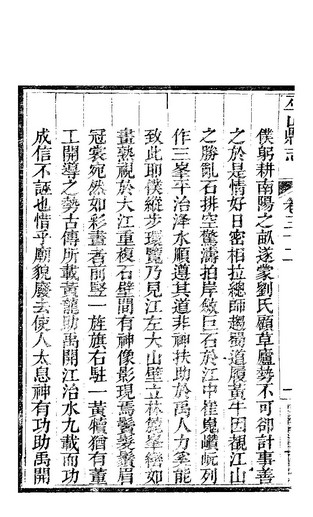 山縣志
卷三十二
僕躬耕南陽之畝遂蒙劉氏顧草廬勢不可卻計事善
之於是情好日密相拉總師趨蜀道履黃牛因覩江山
之勝亂石排空驚濤拍岸斂巨石於江中崔嵬巑岏列
作三峯平治泽水順遵其道非神扶助於禹人力奚能
致此耶僕縱步環覽乃見江左大山壁立林麓峯巒如
畫熟視於大江重複石壁間有神像影現焉鬢髮鬚眉
冠裳宛然如彩畫者前豎一旌旗右駐一黃犢猶有董
工開導之勢古傳所載黃龍助禹開江治水九載而功
成信不誣也惜乎廟貌廢去使人太息神有功助禹開